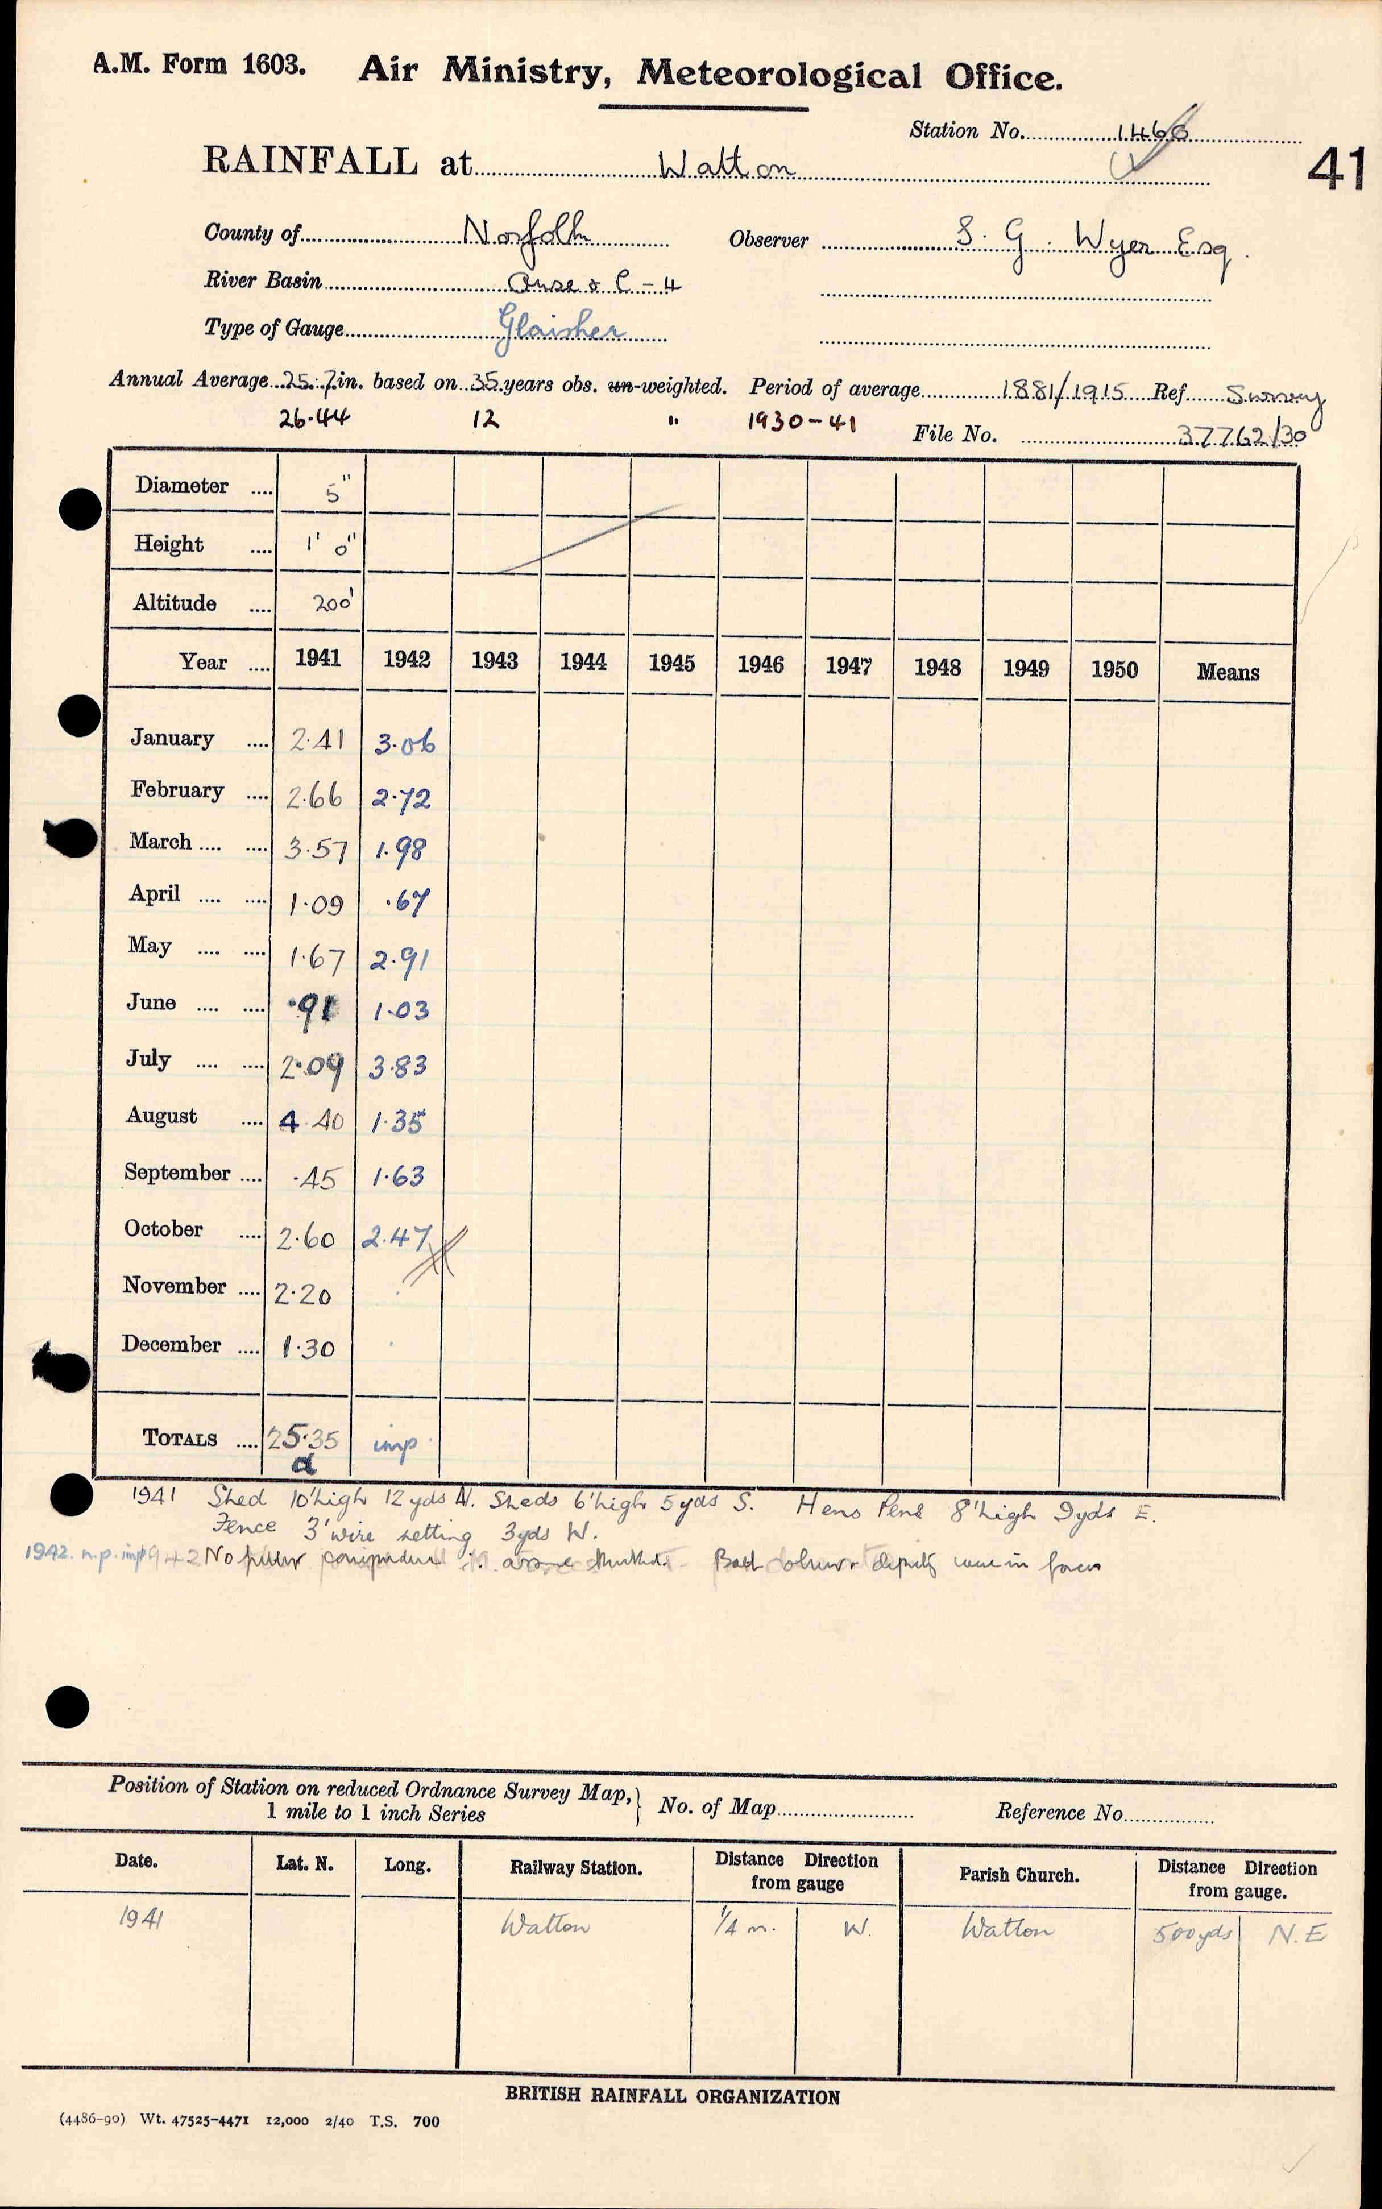 A.M. Form 1603. Air Ministry, Meteorological Office.
Station No. 1466
RAINFALL at Watton
41
County of Norfolk Observer S. G. Wyer Esq.
River Basin Ouse & C - 4
Type of Gauge Glaisher
Annual Average 25.7 in. based on 35 years obs. un-weighted. Period of average 1881/1915 Ref Survey
26.44 12 " 1930-41 File No. 37762/30
Diameter .... 5"
Height .... 1' 0"
Altitude .... 200'
Year .... 1941 1942 1943 1944 1945 1946 1947 1948 1949 1950 Means
January .... 2.41 3.06
February .... 2.66 2.72
March .... .... 3.57 1.98
April .... .... 1.09 .67
May .... .... 1.67 2.91
June .... .... .91 1.03
July .... .... 2.09 3.83
August .... 4.40 1.35
September .... .45 1.63
October .... 2.60 2.47
November .... 2.20
December .... 1.30
TOTALS .... 25.35 imp
a
1941 Shed 10' high 12 yds N. Sheds 6' high 5 yds S. Hens Pens 8' high 9 yds E.
Fence 3' wire netting 3 yds W.
1942. n.p. imp 1942 No further were in forces
Position of Station on reduced Ordnance Survey Map, } No. of Map Reference No.
1 mile to 1 inch Series
Date. Lat. N. Long. Railway Station. Distance Direction from gauge Parish Church. Distance Direction from gauge.
1941 Watton 1/4 m. W. Watton 500 yds N.E
BRITISH RAINFALL ORGANIZATION
(4486-90) Wt. 47525-4471 12,000 2/40 T.S. 700